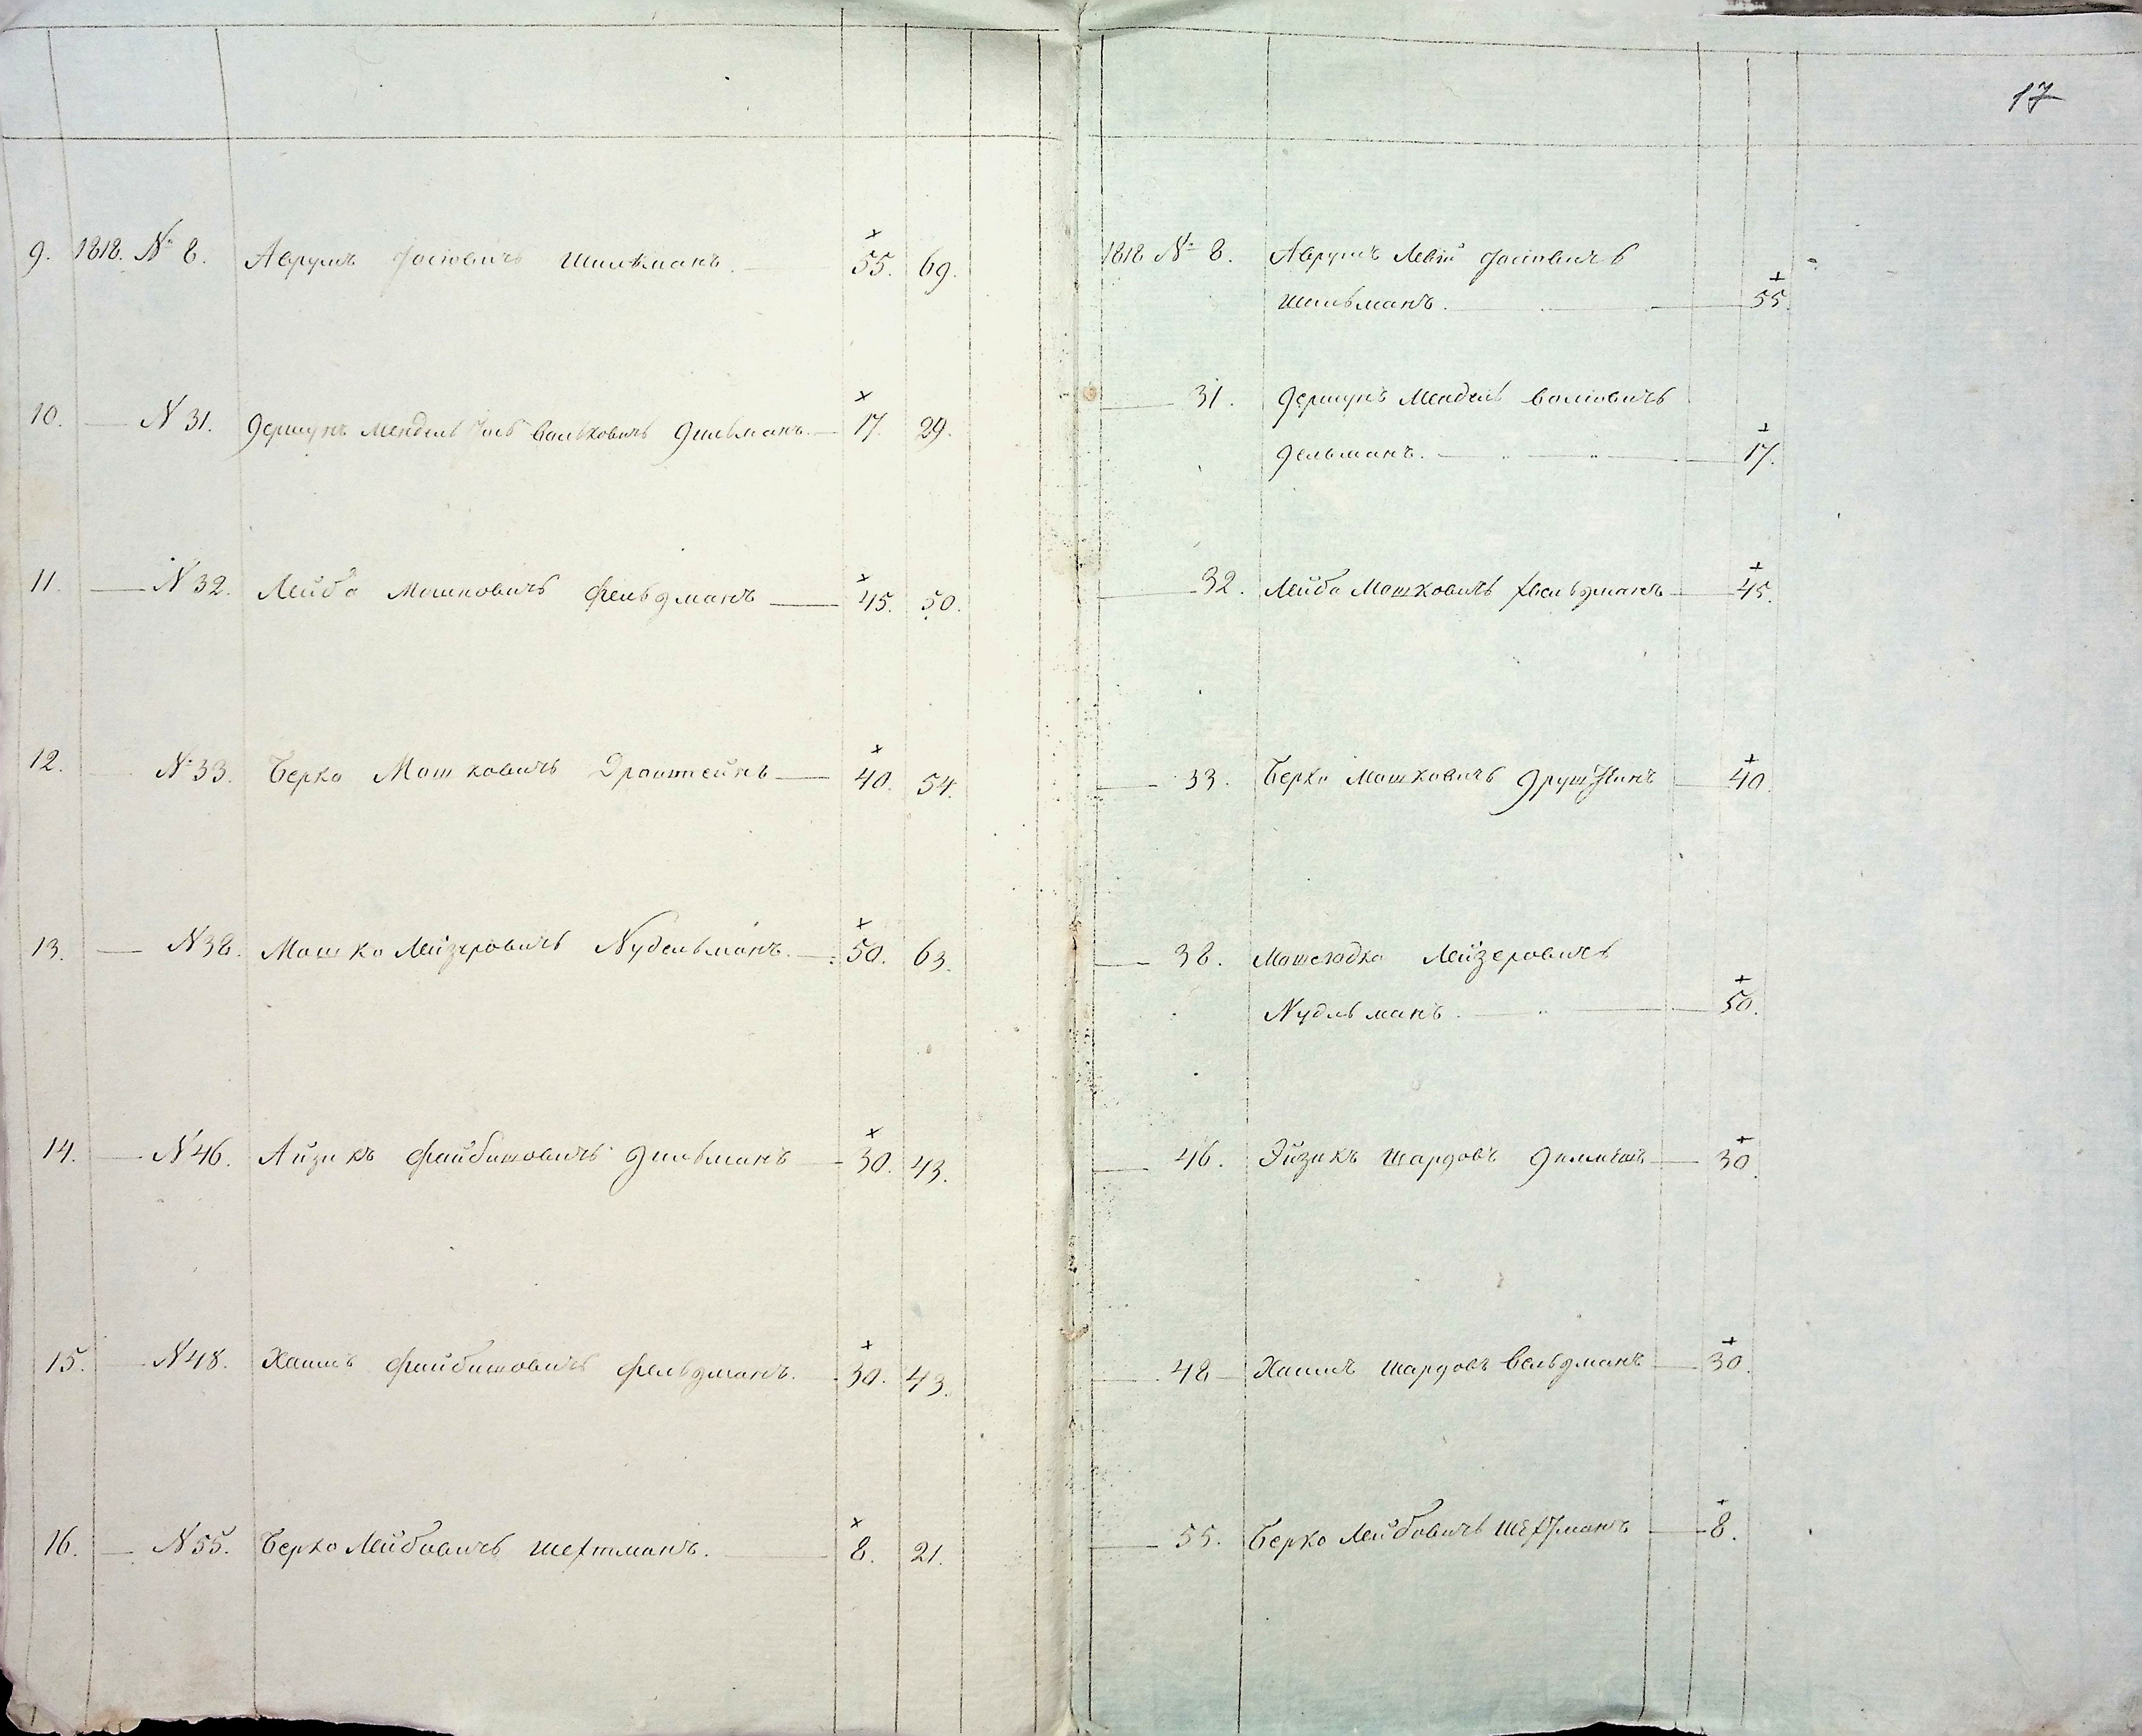 17
9. 1818. № 8. Аврумъ Іосіовичъ Шильманъ. 55. 69.
10. № 31. Гершунъ Мендель Вольковичъ Дильманъ. 17. 29.
11. № 32. Лейба Мошковичъ Фельдманъ 45. 50.
12. № 33. Берко Мошковичъ Драштейнъ 40. 54.
13. № 38. Мошко Лейзеровичъ Нудельманъ. 50. 63.
14. № 46. Айзикъ Файбишовичъ Дильманъ 30. 43.
15. № 48. Хаимъ Файбишовичъ Фельдманъ. 30. 43.
16. № 55. Берко Лейбовичъ Шехтманъ. 8. 21.
1818 № 8. Аврумъ Левій Іосіовичъ
Шильманъ. 55.
31. Гершунъ Мендель Волковичъ
Дельманъ. 17.
32. Лейба Мошковичъ Фельдманъ 45.
33. Берко Мошковичъ 40.
38. Лейзеровичъ
Нудльманъ. 50.
46. Эйзикъ Шардовъ 30.
48 Хаимъ Шардовъ Вельдманъ 30.
55. Берко Лейбовичъ Шехтманъ 8.